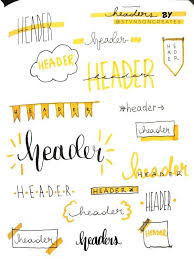 HEADER
headers BY
@STVNSONCREATES
-header-
HEADER
HEADER
HEADER
HEADER
HEADER
»header«
header
HEADER
H-E-A-D-E-R
HEADER
HEADER
header
HEADER
header
headers
header